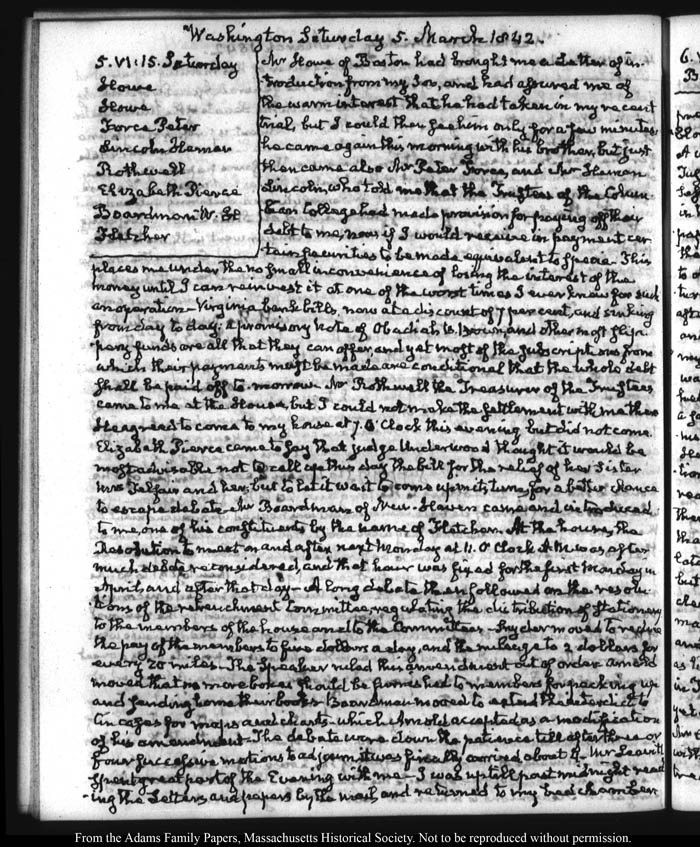 Washington Saturday 5. March 1842.
5. VI:15. Saturday
Howe
Howe
Force Peter
Lincoln Haman
Rothwell
Elizabeth Pierce
Boardman W. W
Fletcher
Mr Howe of Boston had brought me a Letter of in-
troduction from my Son, and had assured me of
the warm interest that he had taken in my recent
trial, but I could then see him only for a few minutes
he came again this morning with his brother, but just
then came also Mr Peter Force, and Mr Haman
Lincoln, who told me that the Trustees of the Colum-
bian College had made provision for paying off their
debt to me, now if I would receive in payment cer-
tain securities to be made equivalent to specie. This
places me under the no small inconvenience of losing the interest of the
money until I can reinvest it at one of the worst times I ever knew for such
an operation – Virginia bank bills, now at a discount of 7 per cent, and sinking
from day to day: a promissory note of Obadiah B. Brown, and other most slip-
pery funds are all that they can offer, and yet most of the subscriptions from
which their payments must be made are conditional that the whole debt
shall be paid off to-morrow. Mr Rothwell the Treasurer of the Trustees
came to me at the House, but I could not make the settlement with me there
He agreed to come to my house at 7. O'Clock this evening but did not come.
Elizabeth Pierce came to say that judge Underwood thought it would be
most advisable not to call up this day the bill for the relief of her Sister
Mrs Telfair and her; but to let it wait to come up in its turn, for a better chance
to escape debate – Mr Boardman of New-Haven came and introduced
to me, one of his constituents by the name of Fletcher. At the house, the
Resolution to meet on and after next Monday at 11. O'Clock A.M. was after
much debate reconsidered, and that hour was fixed for the first Monday in
April, and after that day – A long debate then followed on the resolu-
tions of the retrenchment Committee, regulating the distribution of Stationery
to the members of the house and to the Committees – Snyder moved to reduce
the pay of the members to five dollars a day, and the mileage to 2 dollars for
every 20 miles – The Speaker ruled this amendment out of order. Arnold
moved that no more boxes should be furnished to members for packing up
and sending home their books – Boardman moved to extend the interdict to
tin cases for maps and charts – which Arnold accepted as a modification
of his amendment – The debate wore down the patience till after three or
four successive motions to adjourn it was finally carried about 4 – Mr Leavitt
spent great part of the Evening with me – I was up till past midnight read-
ing the Letters, and papers by the mail, and returned to my bed chamber
From the Adams Family Papers, Massachusetts Historical Society. Not to be reproduced without permission.